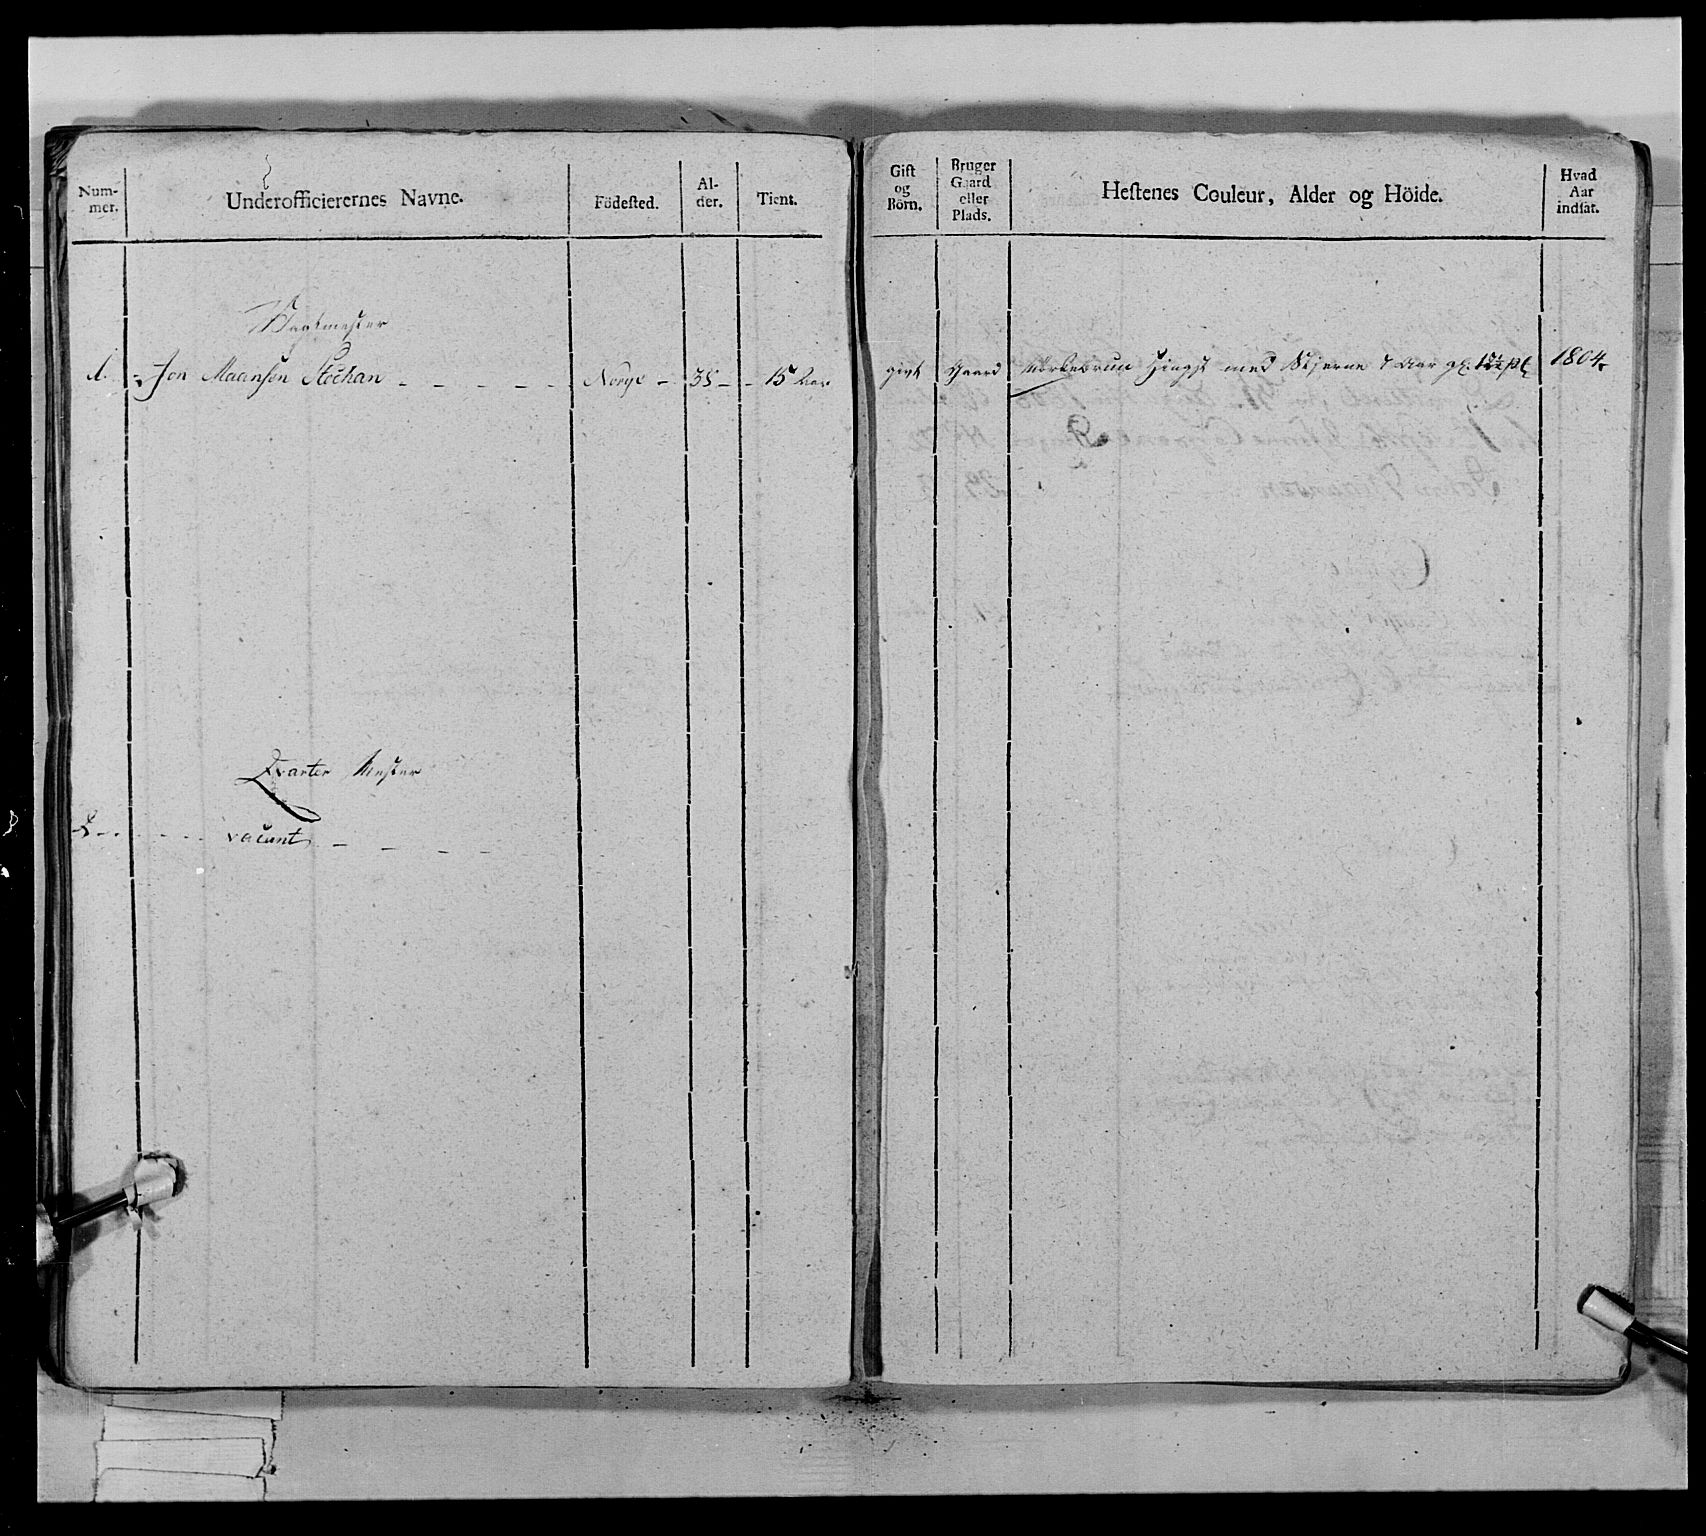 Num-
mer.
Underofficierernes Navne.
Födested.
Al-
der.
Tient.
Gift
og
Börn.
Bruger
Gaard
eller
Plads.
Hestenes Couleur, Alder og Höide.
Hvad
Aar
indsat.
Wagtmester
1. Jon Maansen Stöehan - - - - - Norge - 35 - - 15 Aar givt Gaard Mörkebrun Hingst med Stjerne 7 Aar gl. 1804
Qvarteer Mester
2 - - - - - vacant - - - -